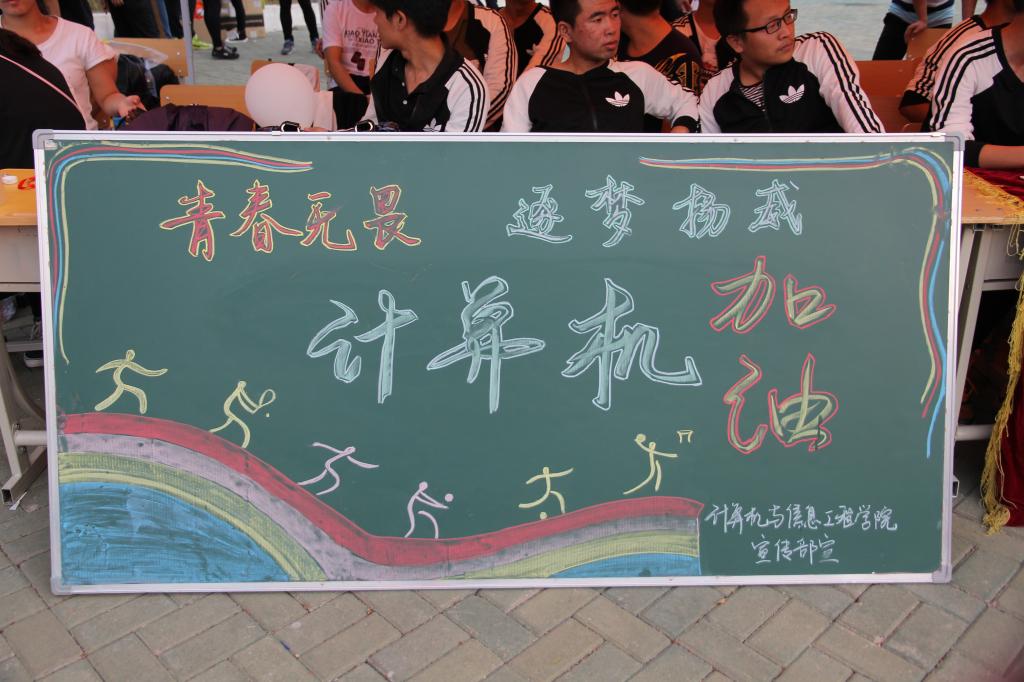 XIAO YIAN
XIAO
青春无畏 逐梦扬威
计算机 加油
计算机与信息工程学院
宣传部宣